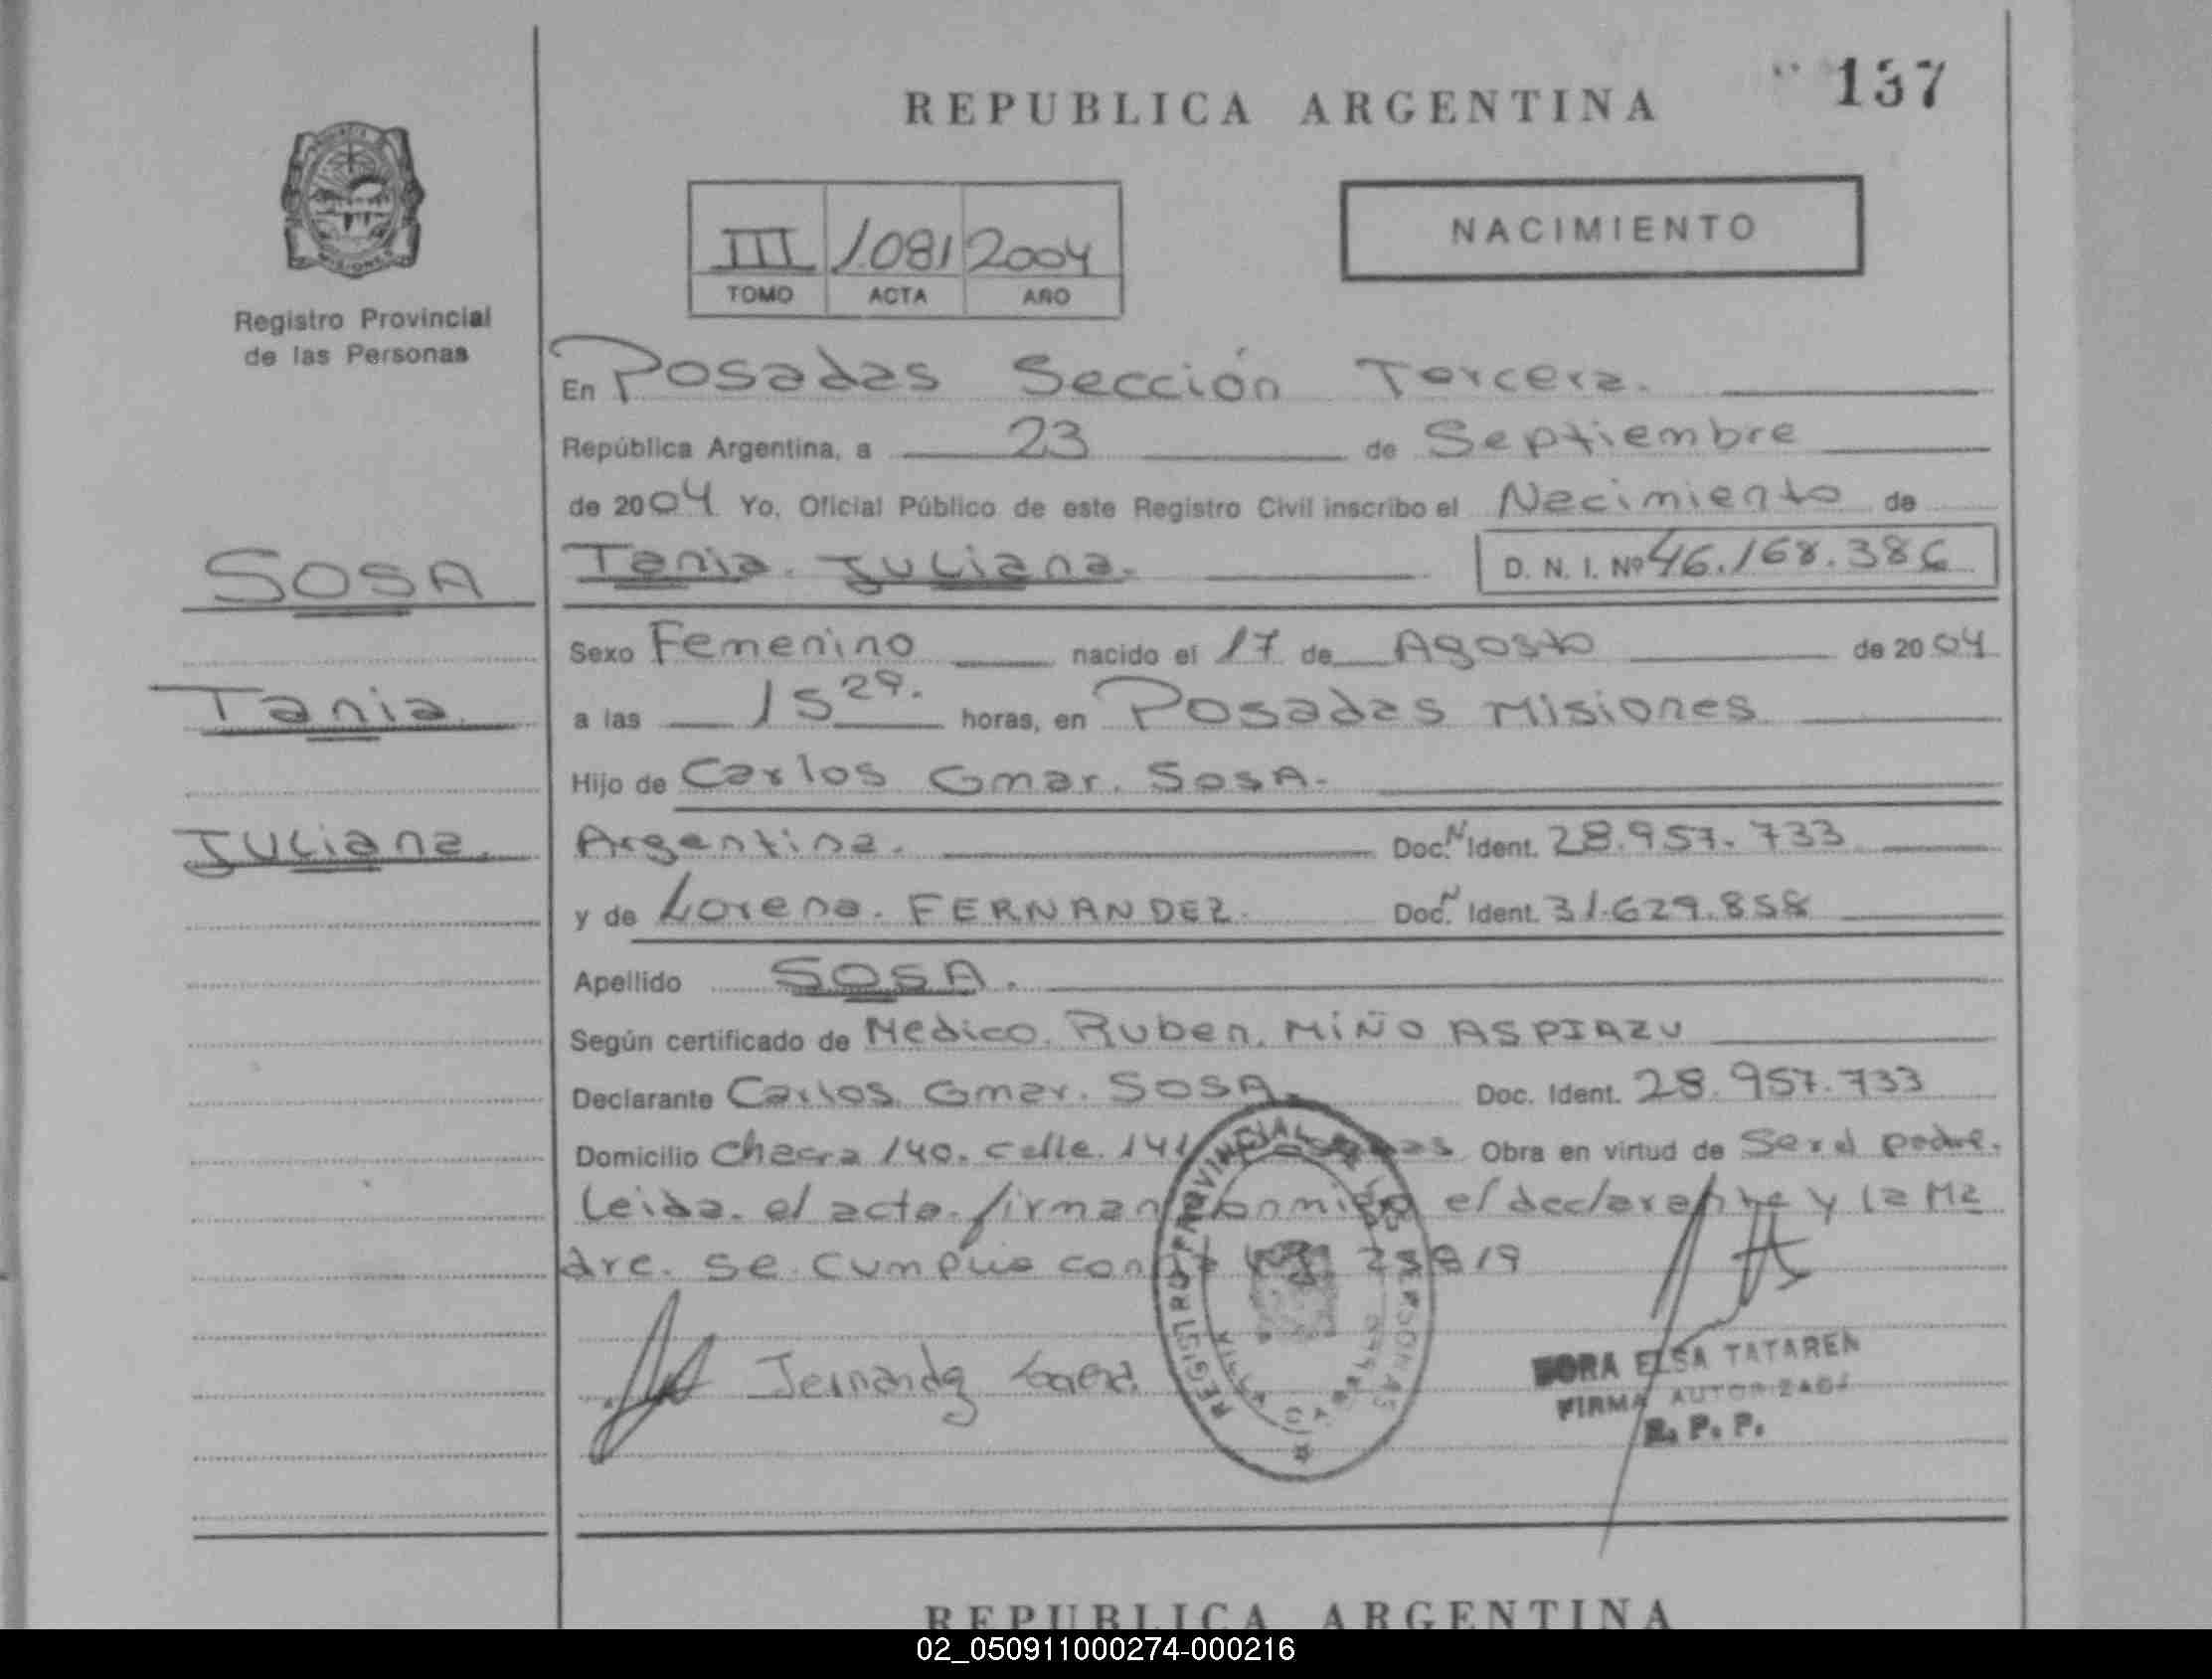 137
REPUBLICA ARGENTINA
NACIMIENTO
III 1.081 2004
TOMO ACTA AÑO
Registro Provincial
de las Personas
En Posadas Sección Tercera.
República Argentina, a 23 de Septiembre
de 2004 Yo, Oficial Público de este Registro Civil inscribo el Nacimiento de
SOSA
Tania. Juliana. D. N. I. Nº 46.168.386
Sexo Femenino nacido el 17 de Agosto de 2004
Tania
a las 15 29. horas, en Posadas Misiones
Hijo de Carlos Gmar. SosA.
Juliana.
Argentina. Doc. N Ident. 28.957.733
y de Lorena. FERNANDEZ. Doc. N Ident. 31.629.858
Apellido SOSA.
Según certificado de Medico. Ruben. MIÑO ASPIAZU
Declarante Carlos. Gmar. SOSA. Doc. Ident. 28.957.733
Domicilio Chacra 140. calle. 141 Obra en virtud de Ser el padre.
Leida. el acta. firman conmigo el declarante y la Ma
dre. se cumplio con 23819
Fernandez Lorena
REGISTRO PROVINCIAL DE LAS PERSONAS
ELSA TATAREN
FIRMA AUTORIZADA
R. P. P.
REPUBLICA ARGENTINA
02_050911000274-000216